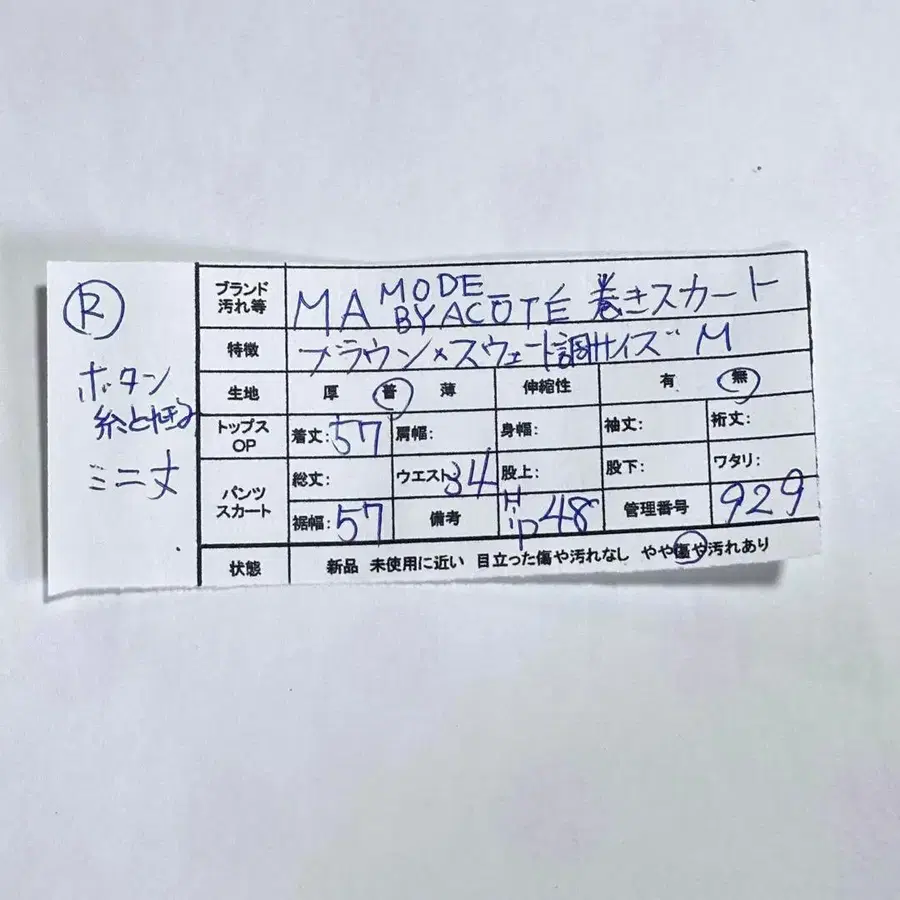 R
ボタン
糸とれそう
ミニ丈
ブランド
汚れ等
MA MODE
BY ACOTÉ 巻きスカート
特徴
ブラウン×スウェード調サイズM
生地 厚 普 薄 伸縮性 有 無
トップス
OP
着丈:57 肩幅: 身幅: 袖丈: 裄丈:
パンツ
スカート
総丈: ウエスト:34 股上: 股下: ワタリ:
裾幅:57 備考 ヒップ48 管理番号 929
状態 新品 未使用に近い 目立った傷や汚れなし やや傷や汚れあり